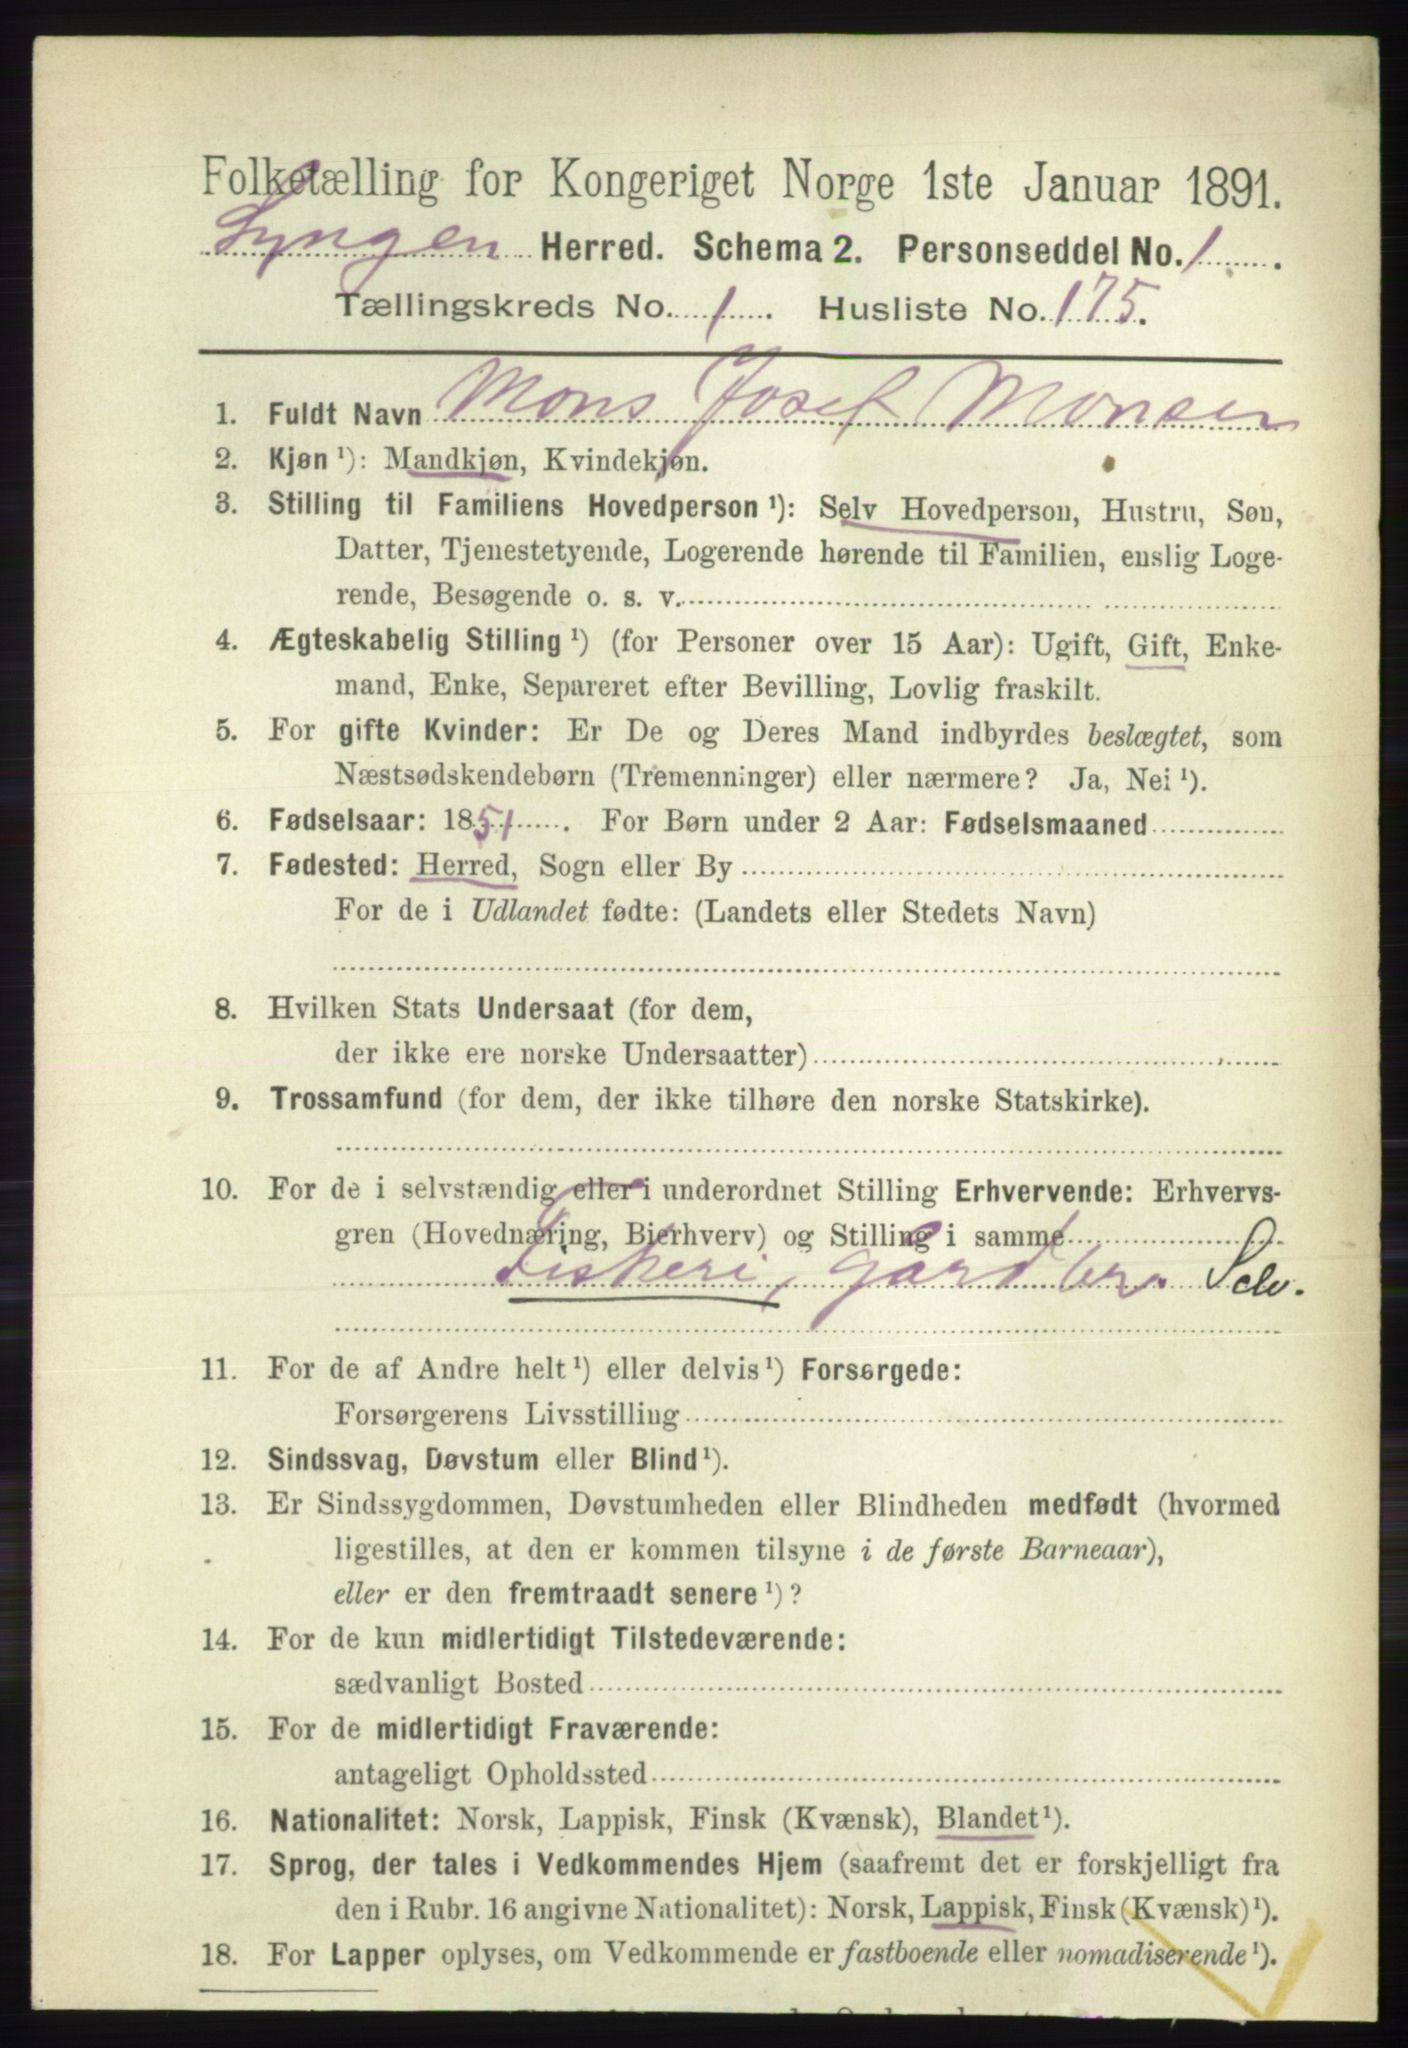 Folketælling for Kongeriget Norge 1ste Januar 1891.
Lyngen Herred. Schema 2. Personseddel No. 1.
Tællingskreds No. 1. Husliste No. 175.
1. Fuldt Navn Mons Josef Monsen
2. Kjøn ¹): Mandkjøn, Kvindekjøn.
3. Stilling til Familiens Hovedperson ¹): Selv Hovedperson, Hustru, Søn,
Datter, Tjenestetyende, Logerende hørende til Familien, enslig Loge-
rende, Besøgende o. s. v.
4. Ægteskabelig Stilling ¹) (for Personer over 15 Aar): Ugift, Gift, Enke-
mand, Enke, Separeret efter Bevilling, Lovlig fraskilt.
5. For gifte Kvinder: Er De og Deres Mand indbyrdes beslægtet, som
Næstsødskendebørn (Tremenninger) eller nærmere? Ja, Nei ¹).
6. Fødselsaar: 1851. For Børn under 2 Aar: Fødselsmaaned
7. Fødested: Herred, Sogn eller By
For de i Udlandet fødte: (Landets eller Stedets Navn)
8. Hvilken Stats Undersaat (for dem,
der ikke ere norske Undersaatter)
9. Trossamfund (for dem, der ikke tilhøre den norske Statskirke).
10. For de i selvstændig eller i underordnet Stilling Erhvervende: Erhvervs-
gren (Hovednæring, Bierhverv) og Stilling i samme
Fiskeri, gårdbr. Selv.
11. For de af Andre helt ¹) eller delvis ¹) Forsørgede:
Forsørgerens Livsstilling
12. Sindssvag, Døvstum eller Blind ¹).
13. Er Sindssygdommen, Døvstumheden eller Blindheden medfødt (hvormed
ligestilles, at den er kommen tilsyne i de første Barneaar),
eller er den fremtraadt senere ¹)?
14. For de kun midlertidigt Tilstedeværende:
sædvanligt Bosted
15. For de midlertidigt Fraværende:
antageligt Opholdssted
16. Nationalitet: Norsk, Lappisk, Finsk (Kvænsk), Blandet ¹).
17. Sprog, der tales i Vedkommendes Hjem (saafremt det er forskjelligt fra
den i Rubr. 16 angivne Nationalitet): Norsk, Lappisk, Finsk (Kvænsk) ¹).
18. For Lapper oplyses, om Vedkommende er fastboende eller nomadiserende ¹).